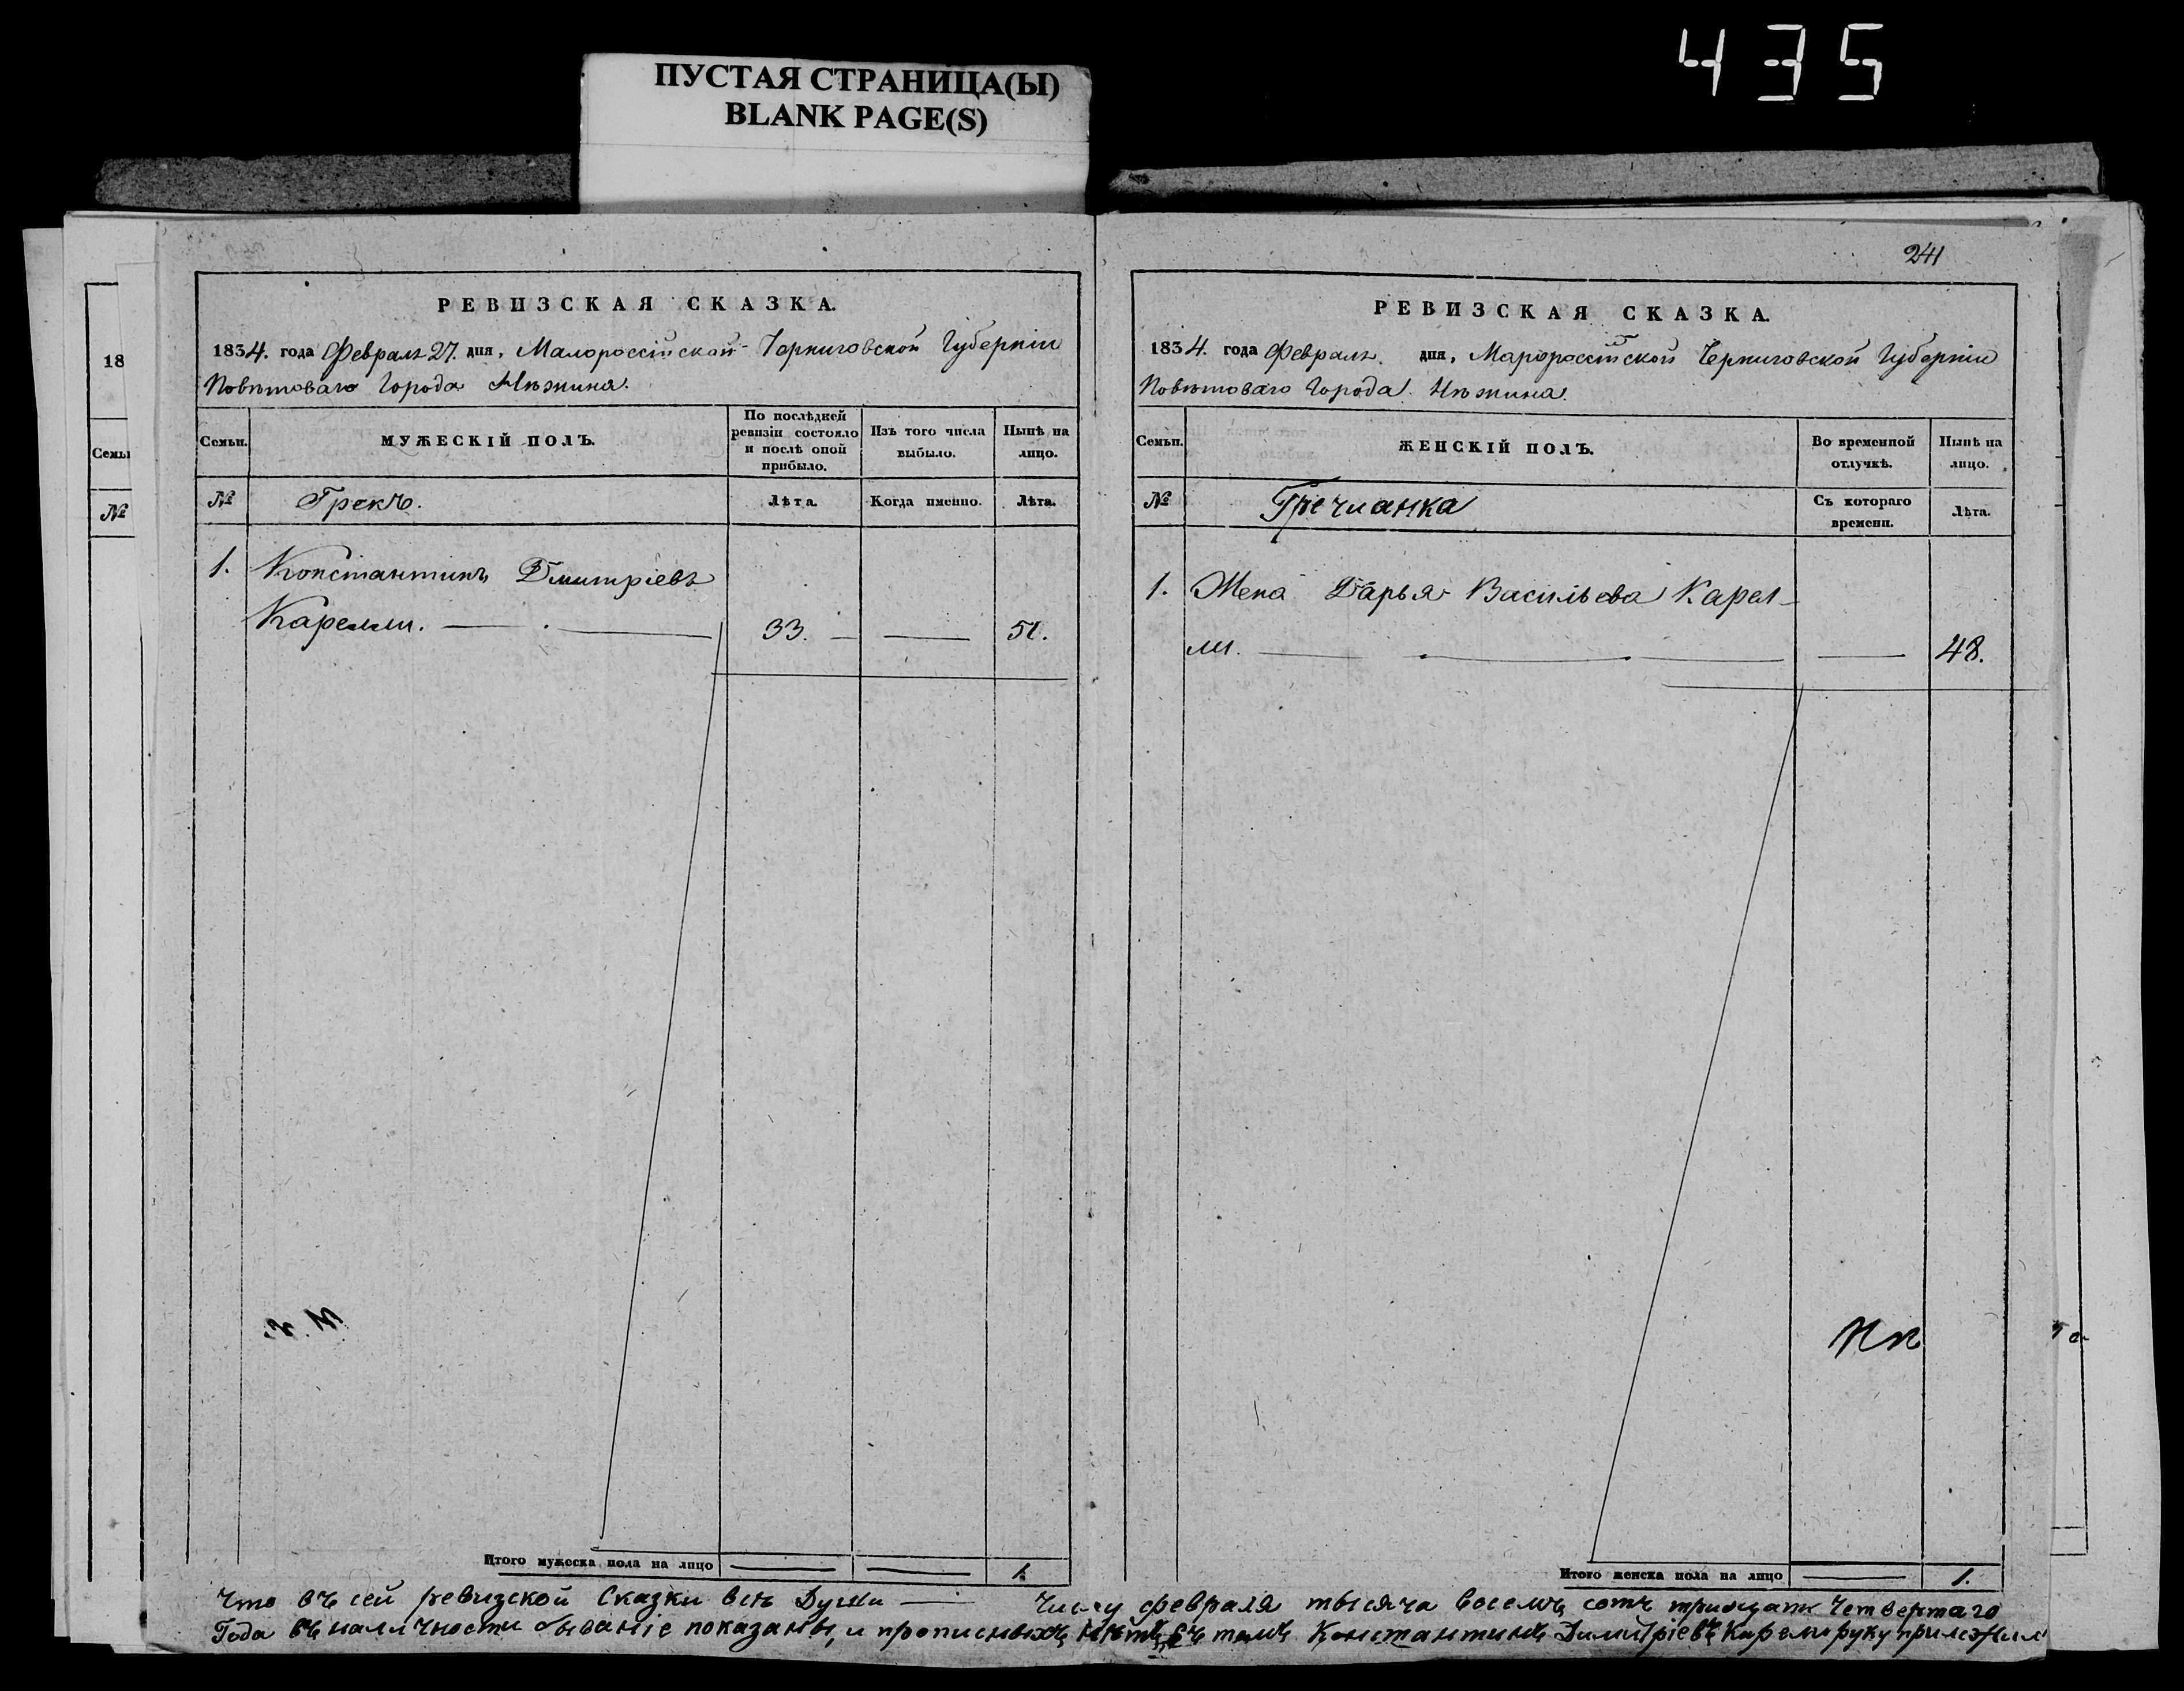 435
ПУСТАЯ СТРАНИЦА(Ы)
BLANK PAGE(S)
18
Семьи
№
РЕВИЗСКАЯ СКАЗКА.
1834. года Февраля 27. дня, Малороссійской Черниговской Губерніи
Повѣтоваго Города Нѣжина.
Семьи. МУЖЕСКІЙ ПОЛЪ. По послѣдней ревизіи состояло и послѣ оной прибыло. Изъ того числа выбыло. Нынѣ на лицо.
№ Грекъ. Лѣта. Когда именно. Лѣта.
1. Константинъ Дмитріевъ
Карелли. 33. 51.
Итого мужеска пола на лицо 1.
241
РЕВИЗСКАЯ СКАЗКА.
1834. года Февраля. дня, Малороссійской Черниговской Губерніи
Повѣтоваго Города Нѣжина.
Семьи. ЖЕНСКІЙ ПОЛЪ. Во временной отлучкѣ. Нынѣ на лицо.
№ Гречианка Съ котораго времени. Лѣта.
1. Жена Дарья Васильева Карел-
ли. 48.
Итого женска пола на лицо 1.
Что въ сей ревизской Сказки всѣ Души — Числу февраля тысяча восемъ сотъ тридцать Четвертаго
Года въ наличности показаны, и прописныхъ нѣтъ въ томъ Константинъ Димитріевъ Карели руку приложил